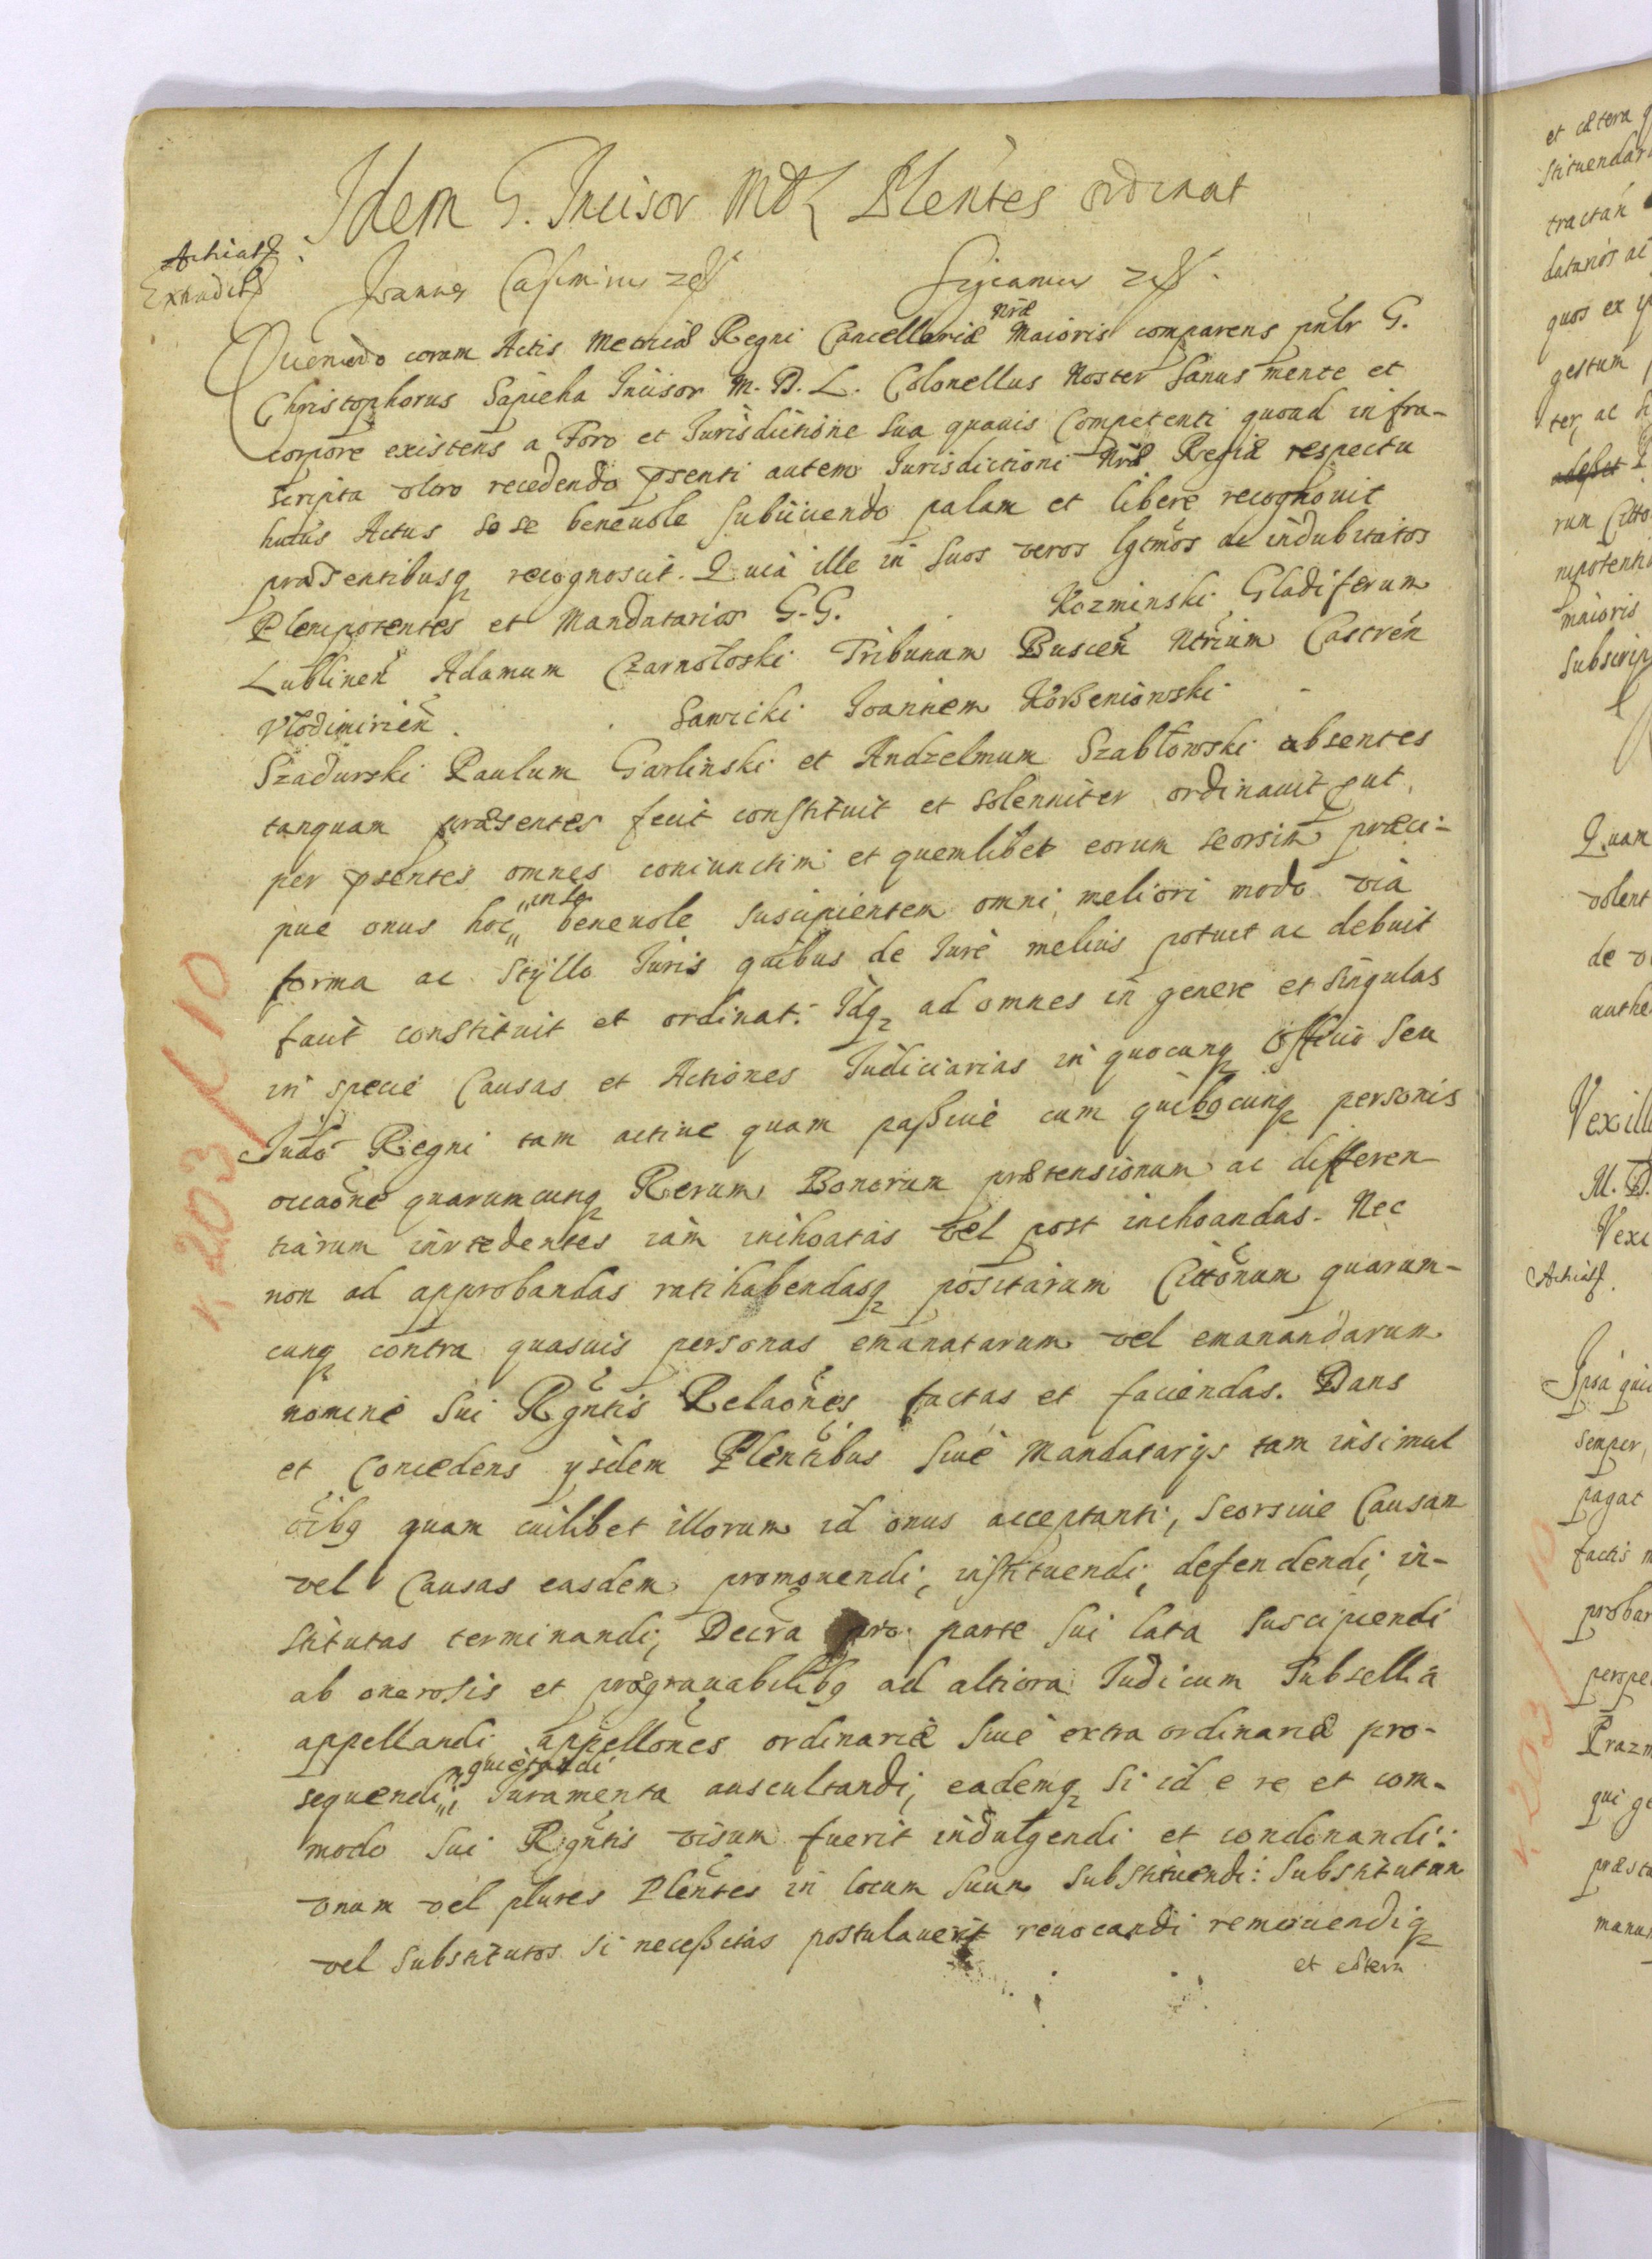 Idem G. Incisor MDL Plentes ordinat
Acticat
Extradit
Joannes Casimirus
Significamus
Quomodo coram Actis Metricæ Regni Cancellariæ Nræ Maioris comparens pnlr G.
Christophorus Sapieha Incisor M. D. L. Colonellus Noster Sanus mente et
corpore existens a Foro et Jurisdictione sua quauis Competenti quoad infra-
scripta vltro recedendo psenti autem Jurisdictioni Nræ Regiæ respectu
huius Actus se se beneuole subiiciendo palam et libere recognouit
præsentibusq recognoscit. Quia ille in suos veros lgtmos ac indubitatos
Plenipotentes et Mandatarios G. G. Kozminski Gladiferum
Lublinen Adamum Czarnołoski Tribunum Buscen Ntrium Castren
Vlodimirien. Sawicki Joannem Korseniowski
Szadurski Paulum Garlinski et Andzelmum Szabłowski absentes
tanquam præsentes fecit constituit et solenniter ordinauit put
per psentes omnes coniunctim et quemlibet eorum seorsim præci-
pue onus hoc in se beneuole suscipientem omni meliori modo via
forma ac Styllo Juris quibus de Jure melius potuit ac debuit
facit constituit et ordinat. Idq ad omnes in genere et singulas
in specie Causas et Actiones Judiciarias in quocunq Officio seu
Judo Regni tam actiue quam passiue cum quibqcunq personis
occaone quarumcunq Rerum Bonorum prætensionum ac differen-
tiarum intcedentes iam inchoatas vel post inchoandas. Nec
non ad approbandas ratihabendasq positarum Citonum quarum-
cunq contra quasuis personas emanatarum vel emanandarum
nomine sui Rgntis Relaones factas et faciendas. Dans
et Concedens ysdem Plentibus siue Mandatarys tam insimul
oibq quam cuilibet illorum id onus acceptanti, seorsiue Causam
vel Causas easdem promouendi, instituendi, defendendi, in-
stitutas terminandi, Decra pro parte sui lata suscipiendi
ab onerosis et prægrauabilibq ad altiora Judicum Subsellia
appellandi appellones ordinarie siue extra ordinarie pro-
sequendi, quietandi Juramenta auscultandi, eademq si id e re et com-
modo sui Rgntis visum fuerit indulgendi et condonandi:
vnum vel plures Plentes in locum suum substituendi: substitutum
vel substitutos si necessitas postulauerit reuocandi remouendiq
et cætera
K 203 / 10
et cætera q
stituendar
tractan
datarios ac
quos ex
gestum
ter, ac
rum Citto
nipotentia
maioris
Subscrip
Quam
volent
de
authe
Vexill
M. D.
Vexi
Acticat
Ipsa qui
semper,
pagat
factis
probar
perpe
Prazm
qui ge
præsta
manu
203 / 10